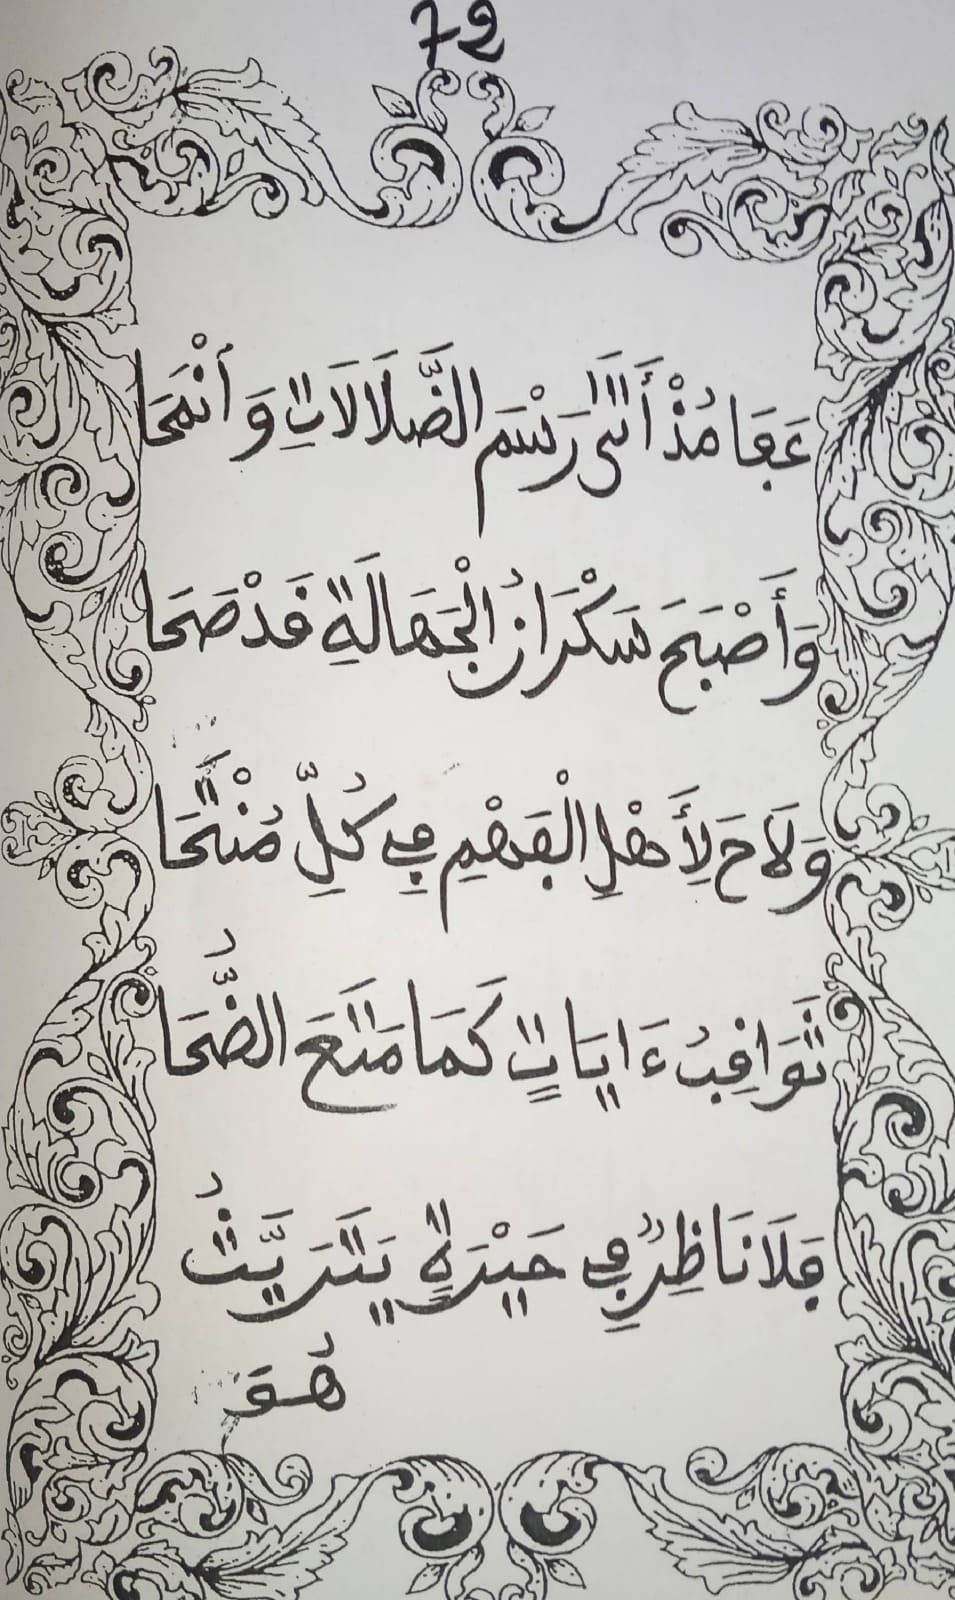 72
عَفَا مُذْ أَتَىٰ رَسْمَ الضَّلَالَاتِ وَانْمَحَا
وَأَصْبَحَ سَكْرَانُ الْجَهَالَةِ قَدْ صَحَا
وَلَاحَ لِأَهْلِ الْفَهْمِ فِي كُلِّ مُنْتَحَا
ثَوَاقِبُ ءَايَاتٍ كَمَا مَتَعَ الضُّحَا
فَلَا نَاظِرٌ فِي حَيْرَةٍ يَتَرَيَّثُ
هُوَ